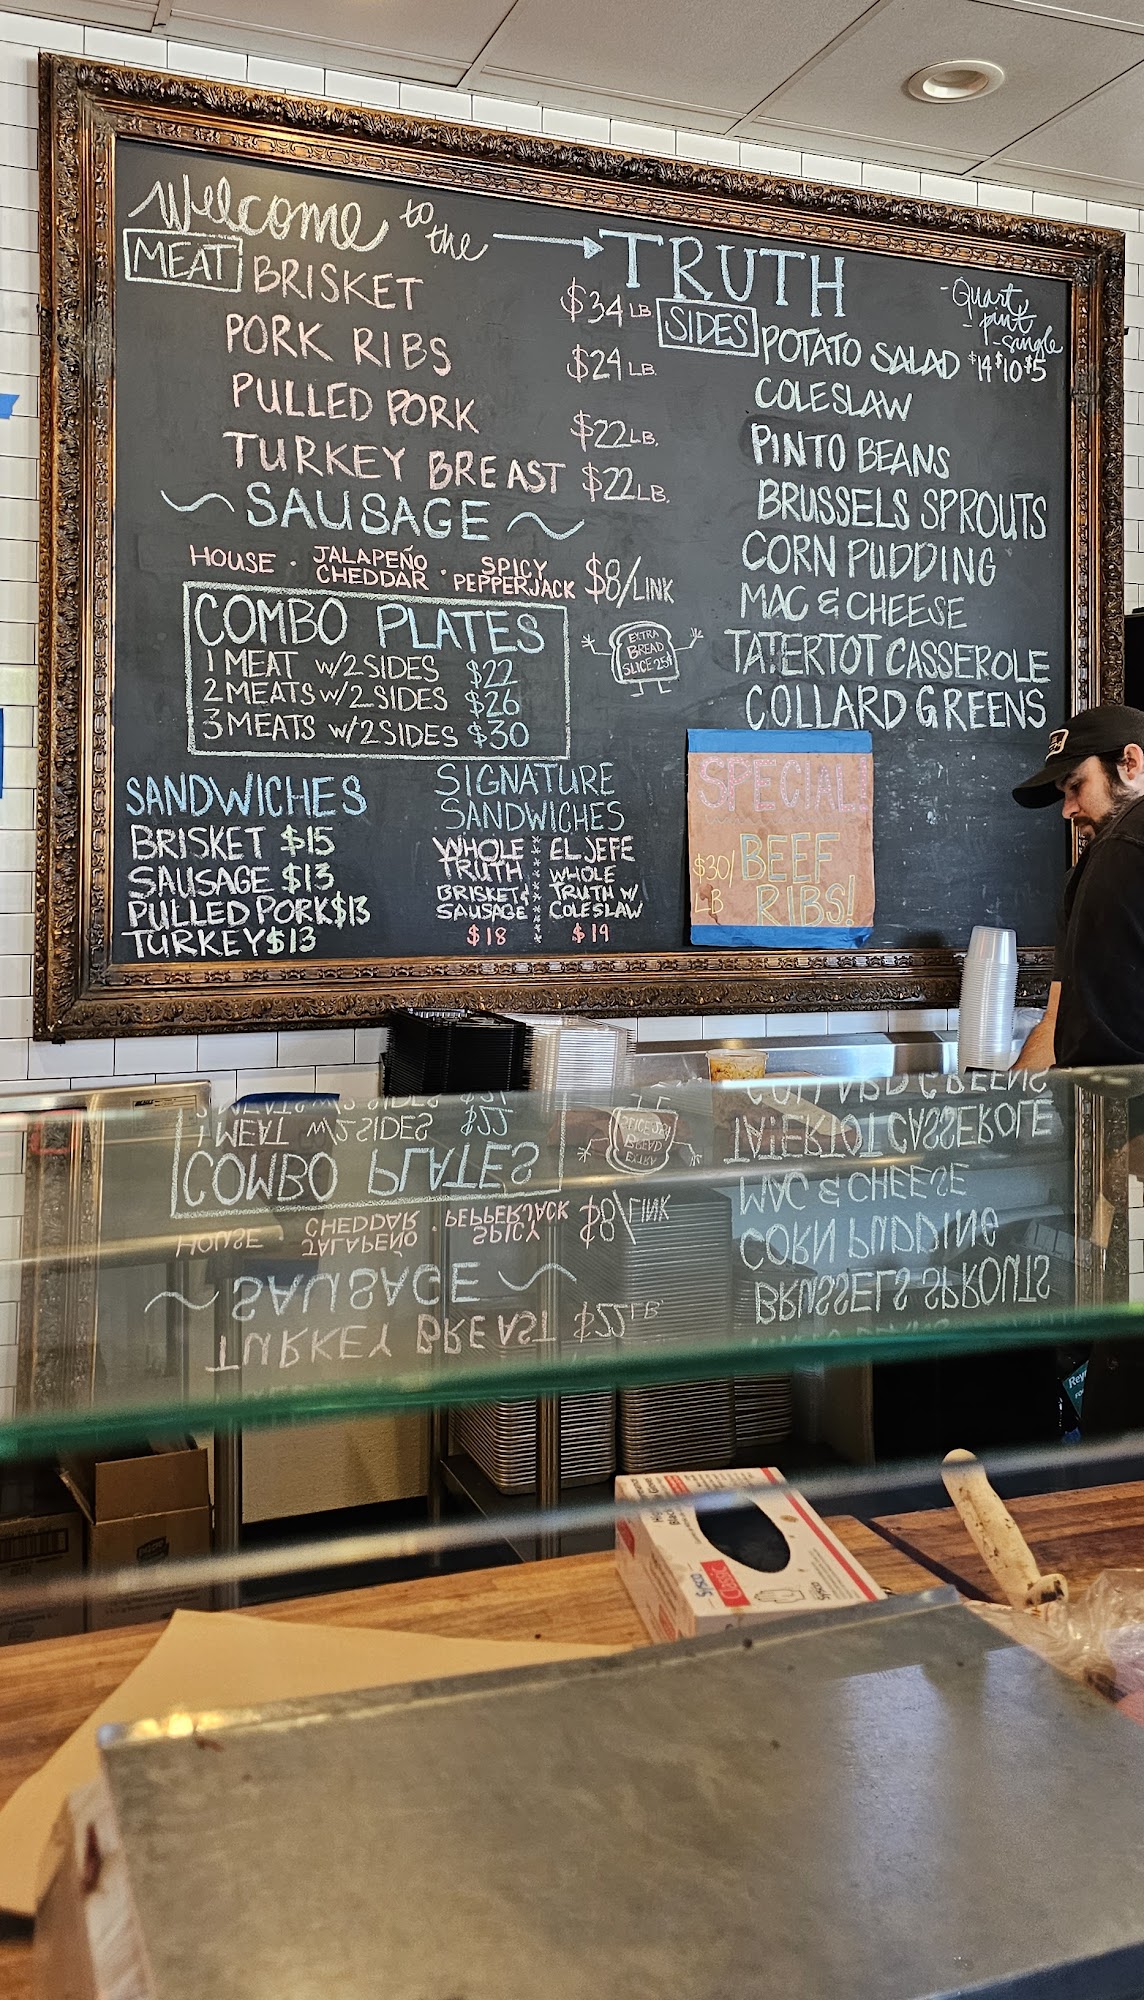 Welcome to the → TRUTH
MEAT
BRISKET $34 LB
PORK RIBS $24 LB.
PULLED PORK $22 LB.
TURKEY BREAST $22 LB.
~ SAUSAGE ~
HOUSE · JALAPEÑO CHEDDAR · SPICY PEPPERJACK $8/LINK
COMBO PLATES
1 MEAT w/2 SIDES $22
2 MEATS w/2 SIDES $26
3 MEATS w/2 SIDES $30
EXTRA
BREAD
SLICE 25¢
SANDWICHES
BRISKET $15
SAUSAGE $13
PULLED PORK $13
TURKEY $13
SIGNATURE
SANDWICHES
WHOLE
TRUTH
BRISKET &
SAUSAGE
$18
EL JEFE
WHOLE
TRUTH W/
COLESLAW
$19
- Quart
- pint
- single
$14 $10 $5
SIDES
POTATO SALAD
COLESLAW
PINTO BEANS
BRUSSELS SPROUTS
CORN PUDDING
MAC & CHEESE
TATERTOT CASSEROLE
COLLARD GREENS
SPECIAL!
$30/
LB
BEEF
RIBS!
Sysco
Classic